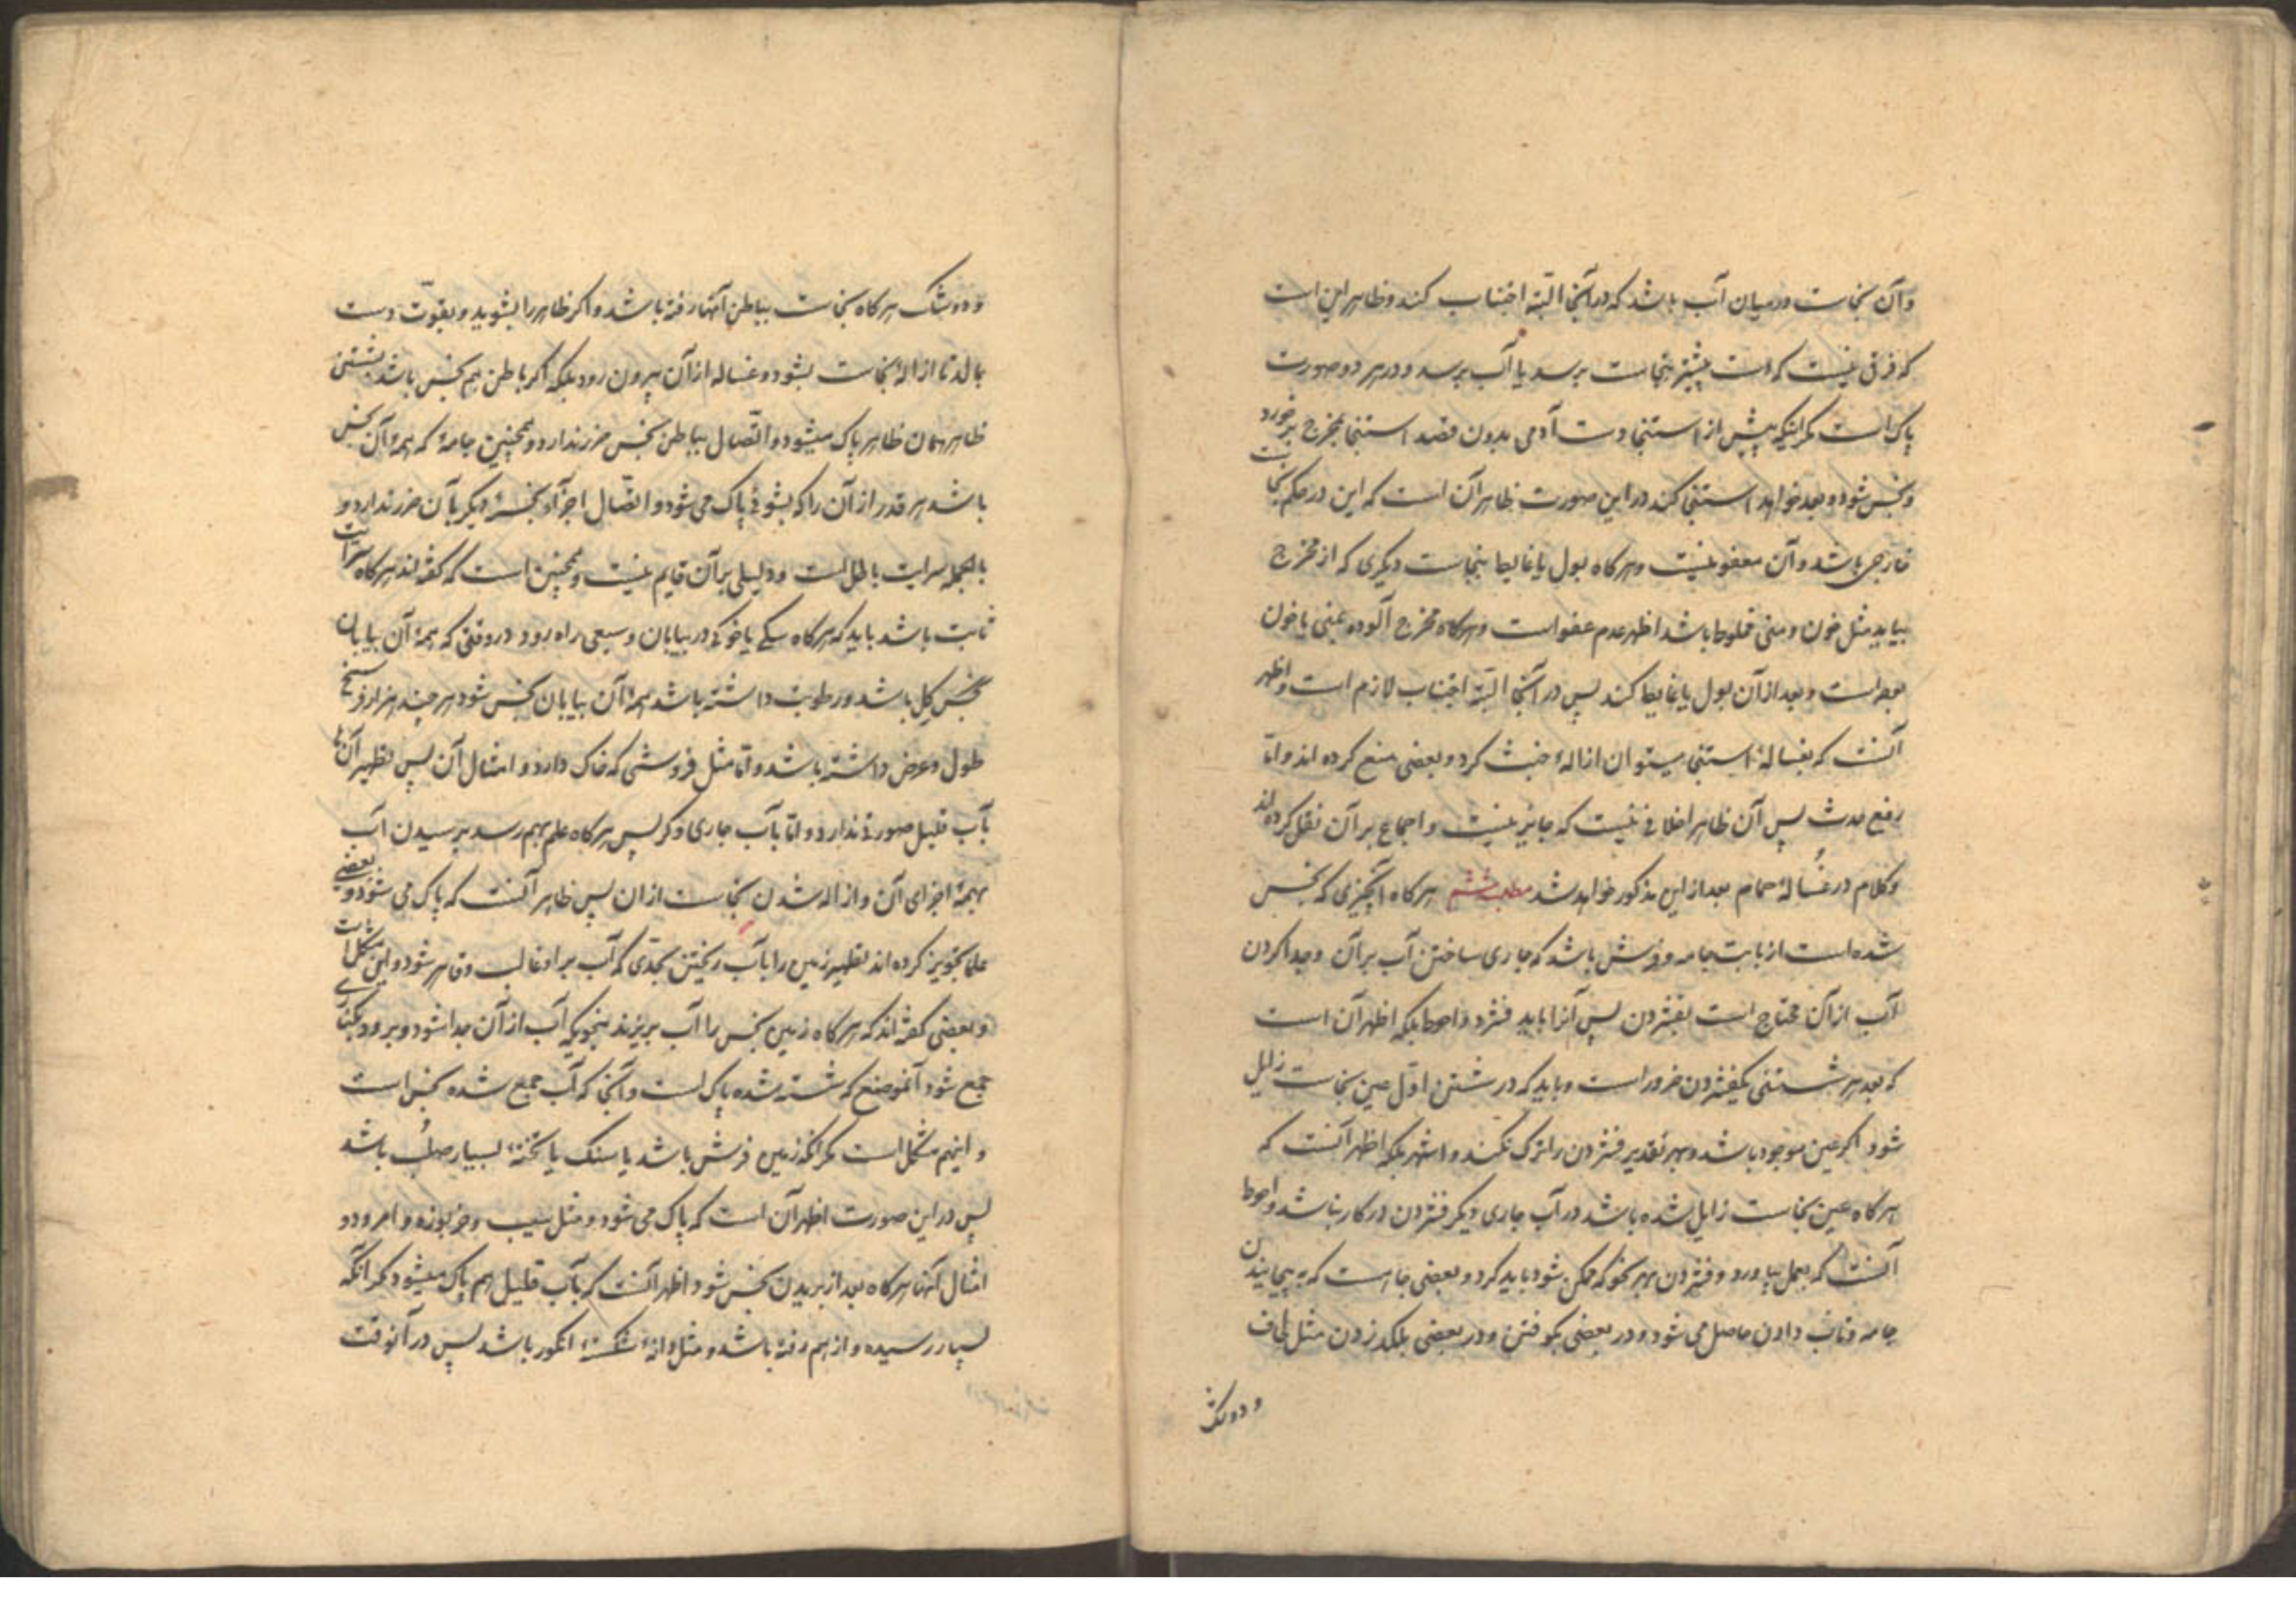 وآن نجاست درمیان آب باشد که درآنجا البته اجتناب کند وظاهر این است
که فرقی نیست که دست پیشتر بنجاست برسد یا آب برسد ودرهر دو صورت
پاک است مکر اینکه پیش از استنجا دست آدمی بدون قصد استنجا بمخرج برخورد
ونجس شود وبعد خواهد استنجا کند در این صورت ظاهر آن است که این در حکم نجاست
خارجی باشد وآن معفو نیست وهرکاه بول یا غایط بنجاست دیکری که از مخرج
بیاید مثل خون ومنی مخلوط باشد اظهر عدم عفو است وهرکاه مخرج آلوده بمنی یا خون
بواسیر است وبعد از آن بول یا غایط کند پس در آنجا البته اجتناب لازم است واظهر
آنست که بغسالهٔ استنجا میتوان ازالهٔ خبث کرد وبعضی منع کرده اند واما
رفع حدث پس آن ظاهرا خلافی نیست که جایز نیست واجماع بر آن نقل کرده اند
وکلام در غُسالهٔ حمام بعد از این مذکور خواهد شد مطلب ششم هرکاه آنچیزی که نجس
شده است از بابت جامه وفرش باشد که جاری ساختن آب بر آن وجدا کردن
آب از آن محتاج است بفشردن پس آنرا باید فشرد واحوط بلکه اظهر آن است
که بعد هر شستنی یکفشردن ضرور است وباید که در شستن اوّل عین نجاست زایل
شود اکر عین موجود باشد وبهر تقدیر فشردن را ترک نکند واشهر بلکه اظهر آنست که
هرکاه عین نجاست زایل شده باشد در آب جاری دیکر فشردن در کار نباشد واحوط
آنست که بعمل بیاورد وفشردن بهر نحو که ممکن شود باید کرد وبعضی جا است که به پیچانیدن
جامه وتاب دادن حاصل می شود ودر بعضی بکوفتن ودر بعضی بلکد زدن مثل لحاف
ودوشک
ودوشک هرکاه نجاست بباطن آنها رفته باشد واکر ظاهر را بشوید وبقوّت دست
بمالد تا ازالهٔ نجاست بشود وغساله از آن بیرون رود بلکه اکر باطن هم نجس باشد بشستن
ظاهر همان ظاهر پاک میشود واتّصال بباطن نجس ضرر ندارد وهمچنین جامهٔ که همهٔ آن نجس
باشد هر قدر از آن را که بشوئی پاک می شود واتّصال اجزآء نجسهٔ دیکر بآن ضرر ندارد و
بالجمله سرایت باطل است ودلیلی بر آن قایم نیست وهمچنین است که کفته اند هرکاه سرایت
ثابت باشد باید که هرکاه سکی یا خوکی در بیابان وسیعی راه رود در وقتی که همهٔ آن بیابان
نجس کِل باشد ورطوبت داشته باشد همهٔ آن بیابان نجس شود هر چند هزار فرسخ
طول وعرض داشته باشد واما مثل فروشی که خاک دارد وامثال آن پس تطهیر آن با
بآب قلیل صورتی ندارد واما بآب جاری وکر پس هرکاه علم بهم رسد برسیدن آب
بهمهٔ اجزای آن وازاله شدن نجاست از ان پس ظاهر آنست که پاک می شود وبعضی
علما تجویز کرده اند تطهیر زمین را بآب ریختن بحدّی که آب بر او غالب وقاهر شود واین مشکل است
وبعضی کفته اند که هرکاه زمین نجس را آب بریزند بنحویکه آب از آن جدا شود وبرود بکناری
جمع شود آنموضع که شسته شده پاک است وآنجا که آب جمع شده نجس است
واینهم مشکل است مکر آنکه زمین فرش باشد یا سنک یا تختهٔ بسیار صلُب باشد
پس در این صورت اظهر آن است که پاک می شود ومثل سیب وخربوزه وامرود و
امثال آنها هرکاه بعد از بریدن نجس شود اظهر آنست که بآب قلیل هم پاک میشود مکر آنکه
بسیار رسیده واز هم رفته باشد ومثل دانهٔ شکستهٔ انکور باشد پس در آنوقت